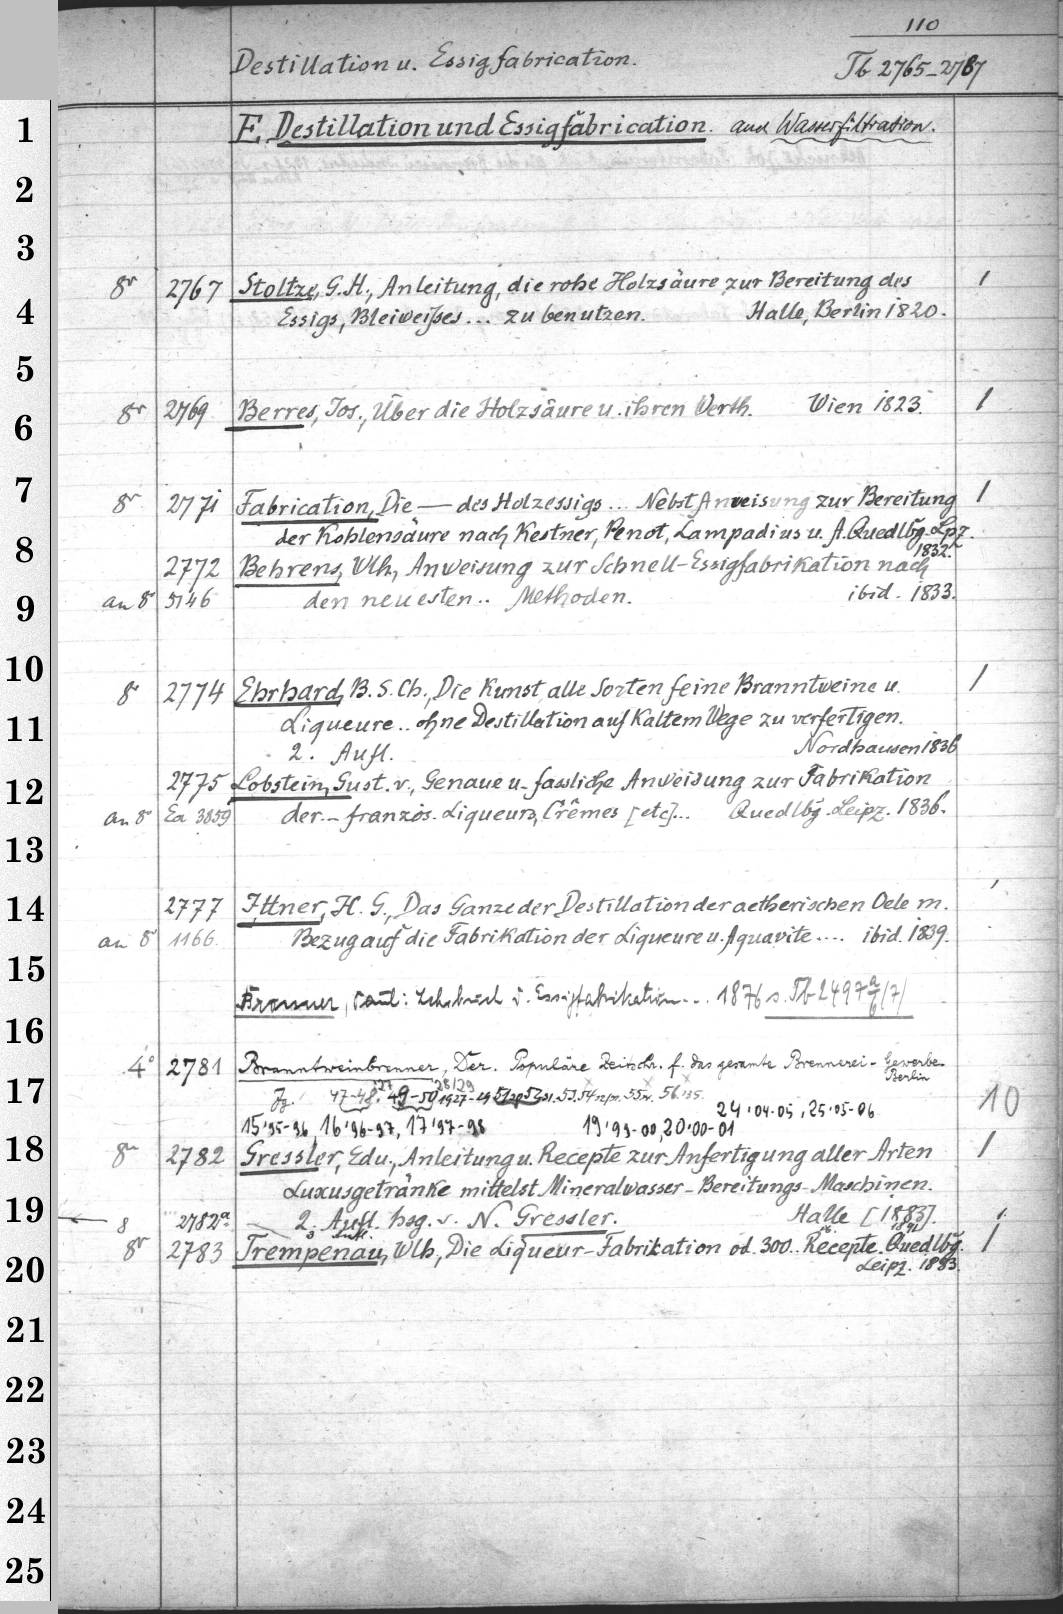 110
Destillation u. Essigfabrication.
Tb 2765-2787
1
E. Destillation und Essigfabrication. und Wasserfiltration.
2
3
8° 2767 Stoltze, G. H., Anleitung, die rohe Holzsäure zur Bereitung des 1
4
Essigs, Bleiweißes... zu benutzen. Halle, Berlin 1820.
5
8° 2769 Berres, Jos., Über die Holzsäure u. ihren Werth. Wien 1823. 1
6
7
8° 2771 Fabrication, Die — des Holzessigs... Nebst Anweisung zur Bereitung 1
8
der Kohlensäure nach Kestner, Penot, Lampadius u. A. Quedlbg. Lpz. 1832.
2772 Behrens, Wlh., Anweisung zur Schnell-Essigfabrikation nach
9
an 8° 5146 den neuesten.. Methoden. ibid. 1833.
10
8° 2774 Ehrhard, B. S. Ch., Die Kunst alle Sorten feine Branntweine u. 1
11
Liqueure.. ohne Destillation auf kaltem Wege zu verfertigen.
2. Aufl. Nordhausen 1836
12
2775 Lobstein, Gust. v., Genaue u. fassliche Anweisung zur Fabrikation
an 8° Ea 3859 der.. französ. Liqueurs, Crêmes [etc]... Quedlbg. Leipz. 1836.
13
14
2777 Ittner, H. G., Das Ganze der Destillation der aetherischen Oele m.
an 8° 1166 Bezug auf die Fabrikation der Liqueure u. Aquavite.... ibid. 1839.
15
Bronner, Paul: Lehrbuch d. Essigfabrikation... 1876 s. Tb 2497
16
4° 2781 Branntweinbrenner, Der. Populäre Zeitschr. f. das gesamte Brennerei-Gewerbe. Berlin
17
Jg. 47-48. 49-50 10
24'04-05, 25'05-06
15'95-96, 16'96-97, 17'97-98 19'99-00, 20'00-01
18
8° 2782 Gressler, Edu., Anleitung u. Recepte zur Anfertigung aller Arten 1
Luxusgetränke mittelst Mineralwasser-Bereitungs-Maschinen.
19
8 2782a 2. Aufl. hsg. v. N. Gressler. Halle [1883].
8° 2783 Trempenau, Wlh., Die Liqueur-Fabrikation od. 300.. Recepte. Quedlbg. 1
20
Leipz. 1883.
21
22
23
24
25